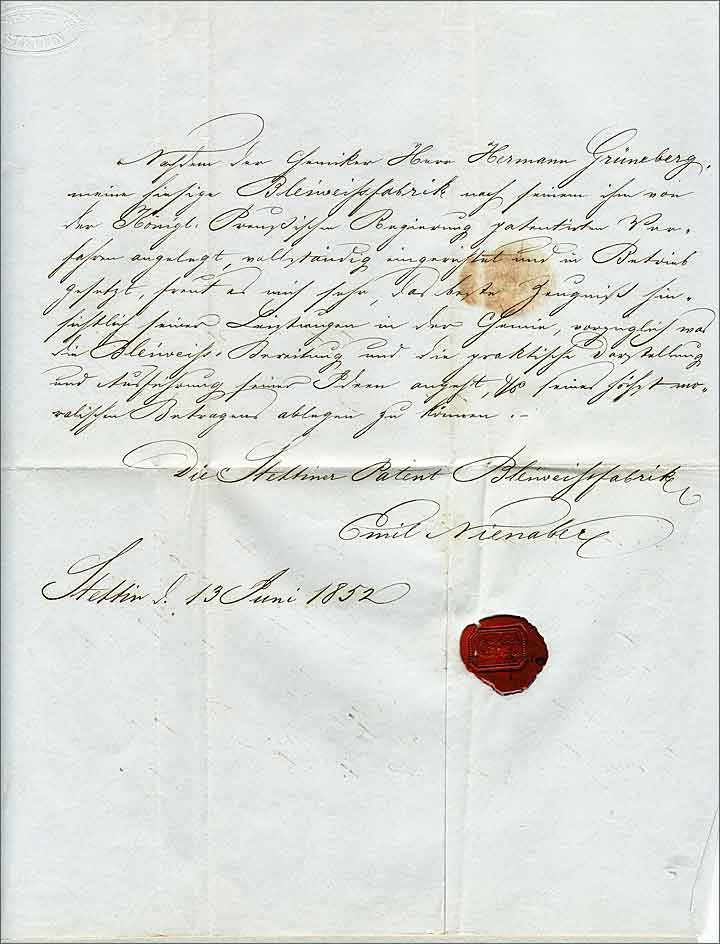 STETTIN
Nachdem der Chemiker Herr Hermann Grüneberg,
meine hiesige Bleiweissfabrik nach seinem ihm von
der Königl: Preußischen Regierung patentirten Ver-
fahren angelegt, vollständig eingerichtet und in Betrieb
gesetzt, freut es mich sehr, das beste Zeugniß hin-
sichtlich seiner Leistungen in der Chemie, vorzüglich was
die Bleiweiss-Bereitung und die praktische Darstellung
und Ausführung seiner Ideen angeht, seines höchst mo-
ralischen Betragens ablegen zu können.-
Die Stettiner Patent Bleiweissfabrik
Emil Nienaber
Stettin d. 13 Juni 1852